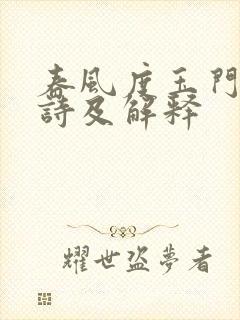 春風度玉門
詩及解釋
耀世盜夢者